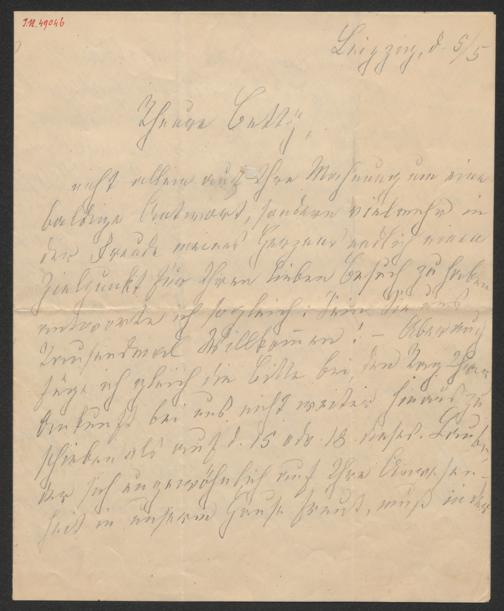 I.N. 49046
Leipzig, d. 5/5
Theure Betty,
nicht allein auf Ihre Mahnung um eine
baldige Antwort, sondern vielmehr in
der Freude meines Herzens endlich einen
Zielpunkt für Ihren lieben Besuch zu haben
antworte ich sogleich: Seien Sie uns
Tausendmal Willkommen! – Aber auch
füge ich gleich die Bitte bei, den Tag Ihrer
Ankunft bei uns nicht weiter hinaus zu
schieben als auf d. 15 odr. 18 dieses.
der sich ungewöhnlich auf Ihre Anwesen-
heit in unserm Hause freut, muß in der